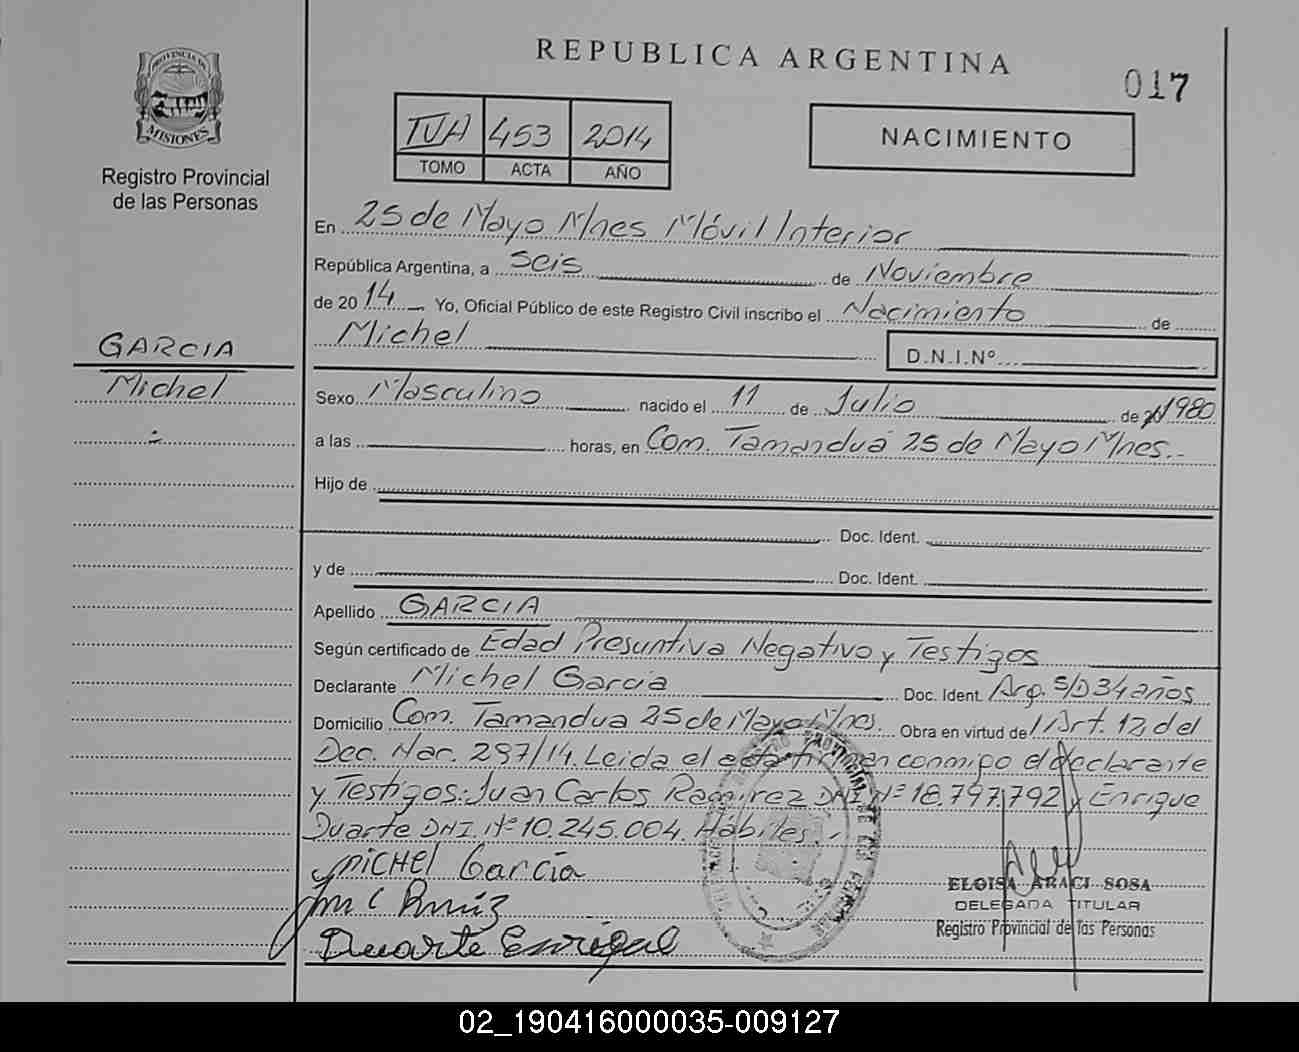 REPUBLICA ARGENTINA
017
PROVINCIA DE
MISIONES
Registro Provincial
de las Personas
TVA 453 2014
TOMO ACTA AÑO
NACIMIENTO
En 25 de Mayo Mnes Móvil Interior
República Argentina, a seis de Noviembre
de 2014 Yo, Oficial Público de este Registro Civil inscribo el Nacimiento de
Michel
D.N.I.Nº
GARCIA
Michel
Sexo Masculino nacido el 11 de Julio de 1980
a las horas, en Com. Tamandua 25 de Mayo Mnes.
Hijo de
Doc. Ident.
y de Doc. Ident.
Apellido GARCIA
Según certificado de Edad Presuntiva Negativo y Testigos
Declarante Michel Garcia Doc. Ident. Arg. S/D 34 años
Domicilio Com. Tamandua 25 de Mayo Mnes. Obra en virtud del Art. 12 del
Dec. Nac. 297/14. Leida el acta firman conmigo el declarante
y Testigos: Juan Carlos Ramirez DNI Nº 18.797.792 y Enrique
Duarte DNI. Nº 10.245.004. Hábiles.
MICHEL García
Duarte Enrique
ELOISA ARACI SOSA
DELEGADA TITULAR
Registro Provincial de las Personas
02_190416000035-009127